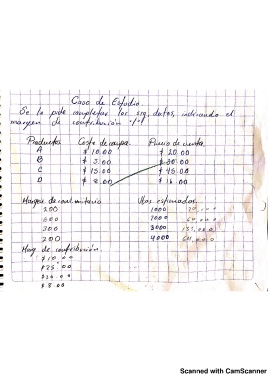 Caso de Estudio.
Se le pide completar los sig. datos, indicando el
margen de contribución
Productos Costo de compra. Precio de venta.
A $ 10.00 $ 20.00
B $ 5.00 $ 30.00
C $ 15.00 $ 45.00
D $ 8.00 $ 16.00
Margen de cont. unitario Vtas estimadas.
200 1000
500 2000
300 3000
200 4000
Marg. de contribución.
$ 10.00
$ 25.00
$ 8.00
Scanned with CamScanner